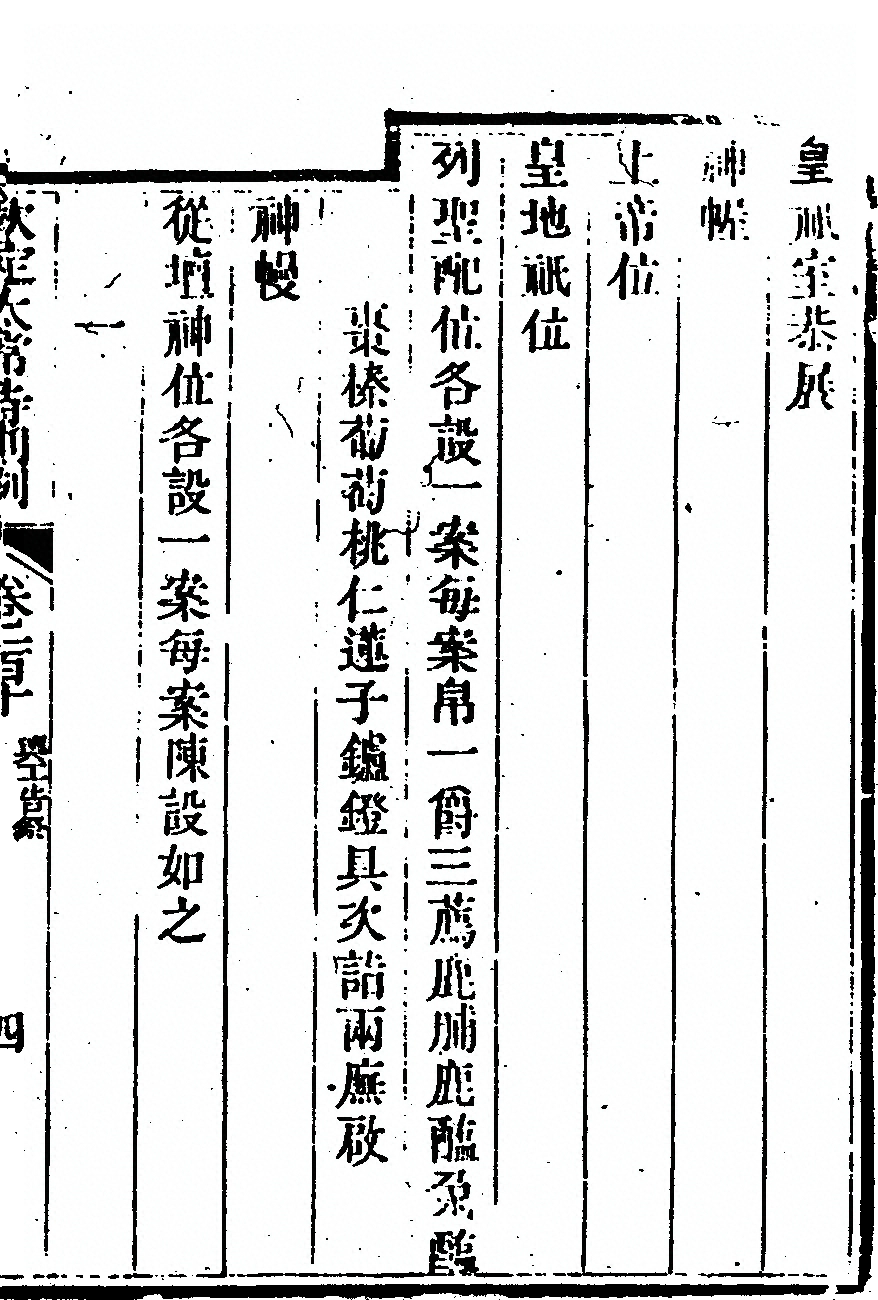 皇祇室恭展
神幄
上帝位
皇地祇位
列聖配位各設一案每案帛一爵三薦鹿脯鹿醢兔醢
棗榛葡萄桃仁蓮子鑪鐙具次詣兩廡啟
神幔
從壇神位各設一案每案陳設如之
欽定太常寺則例 卷二百十 四